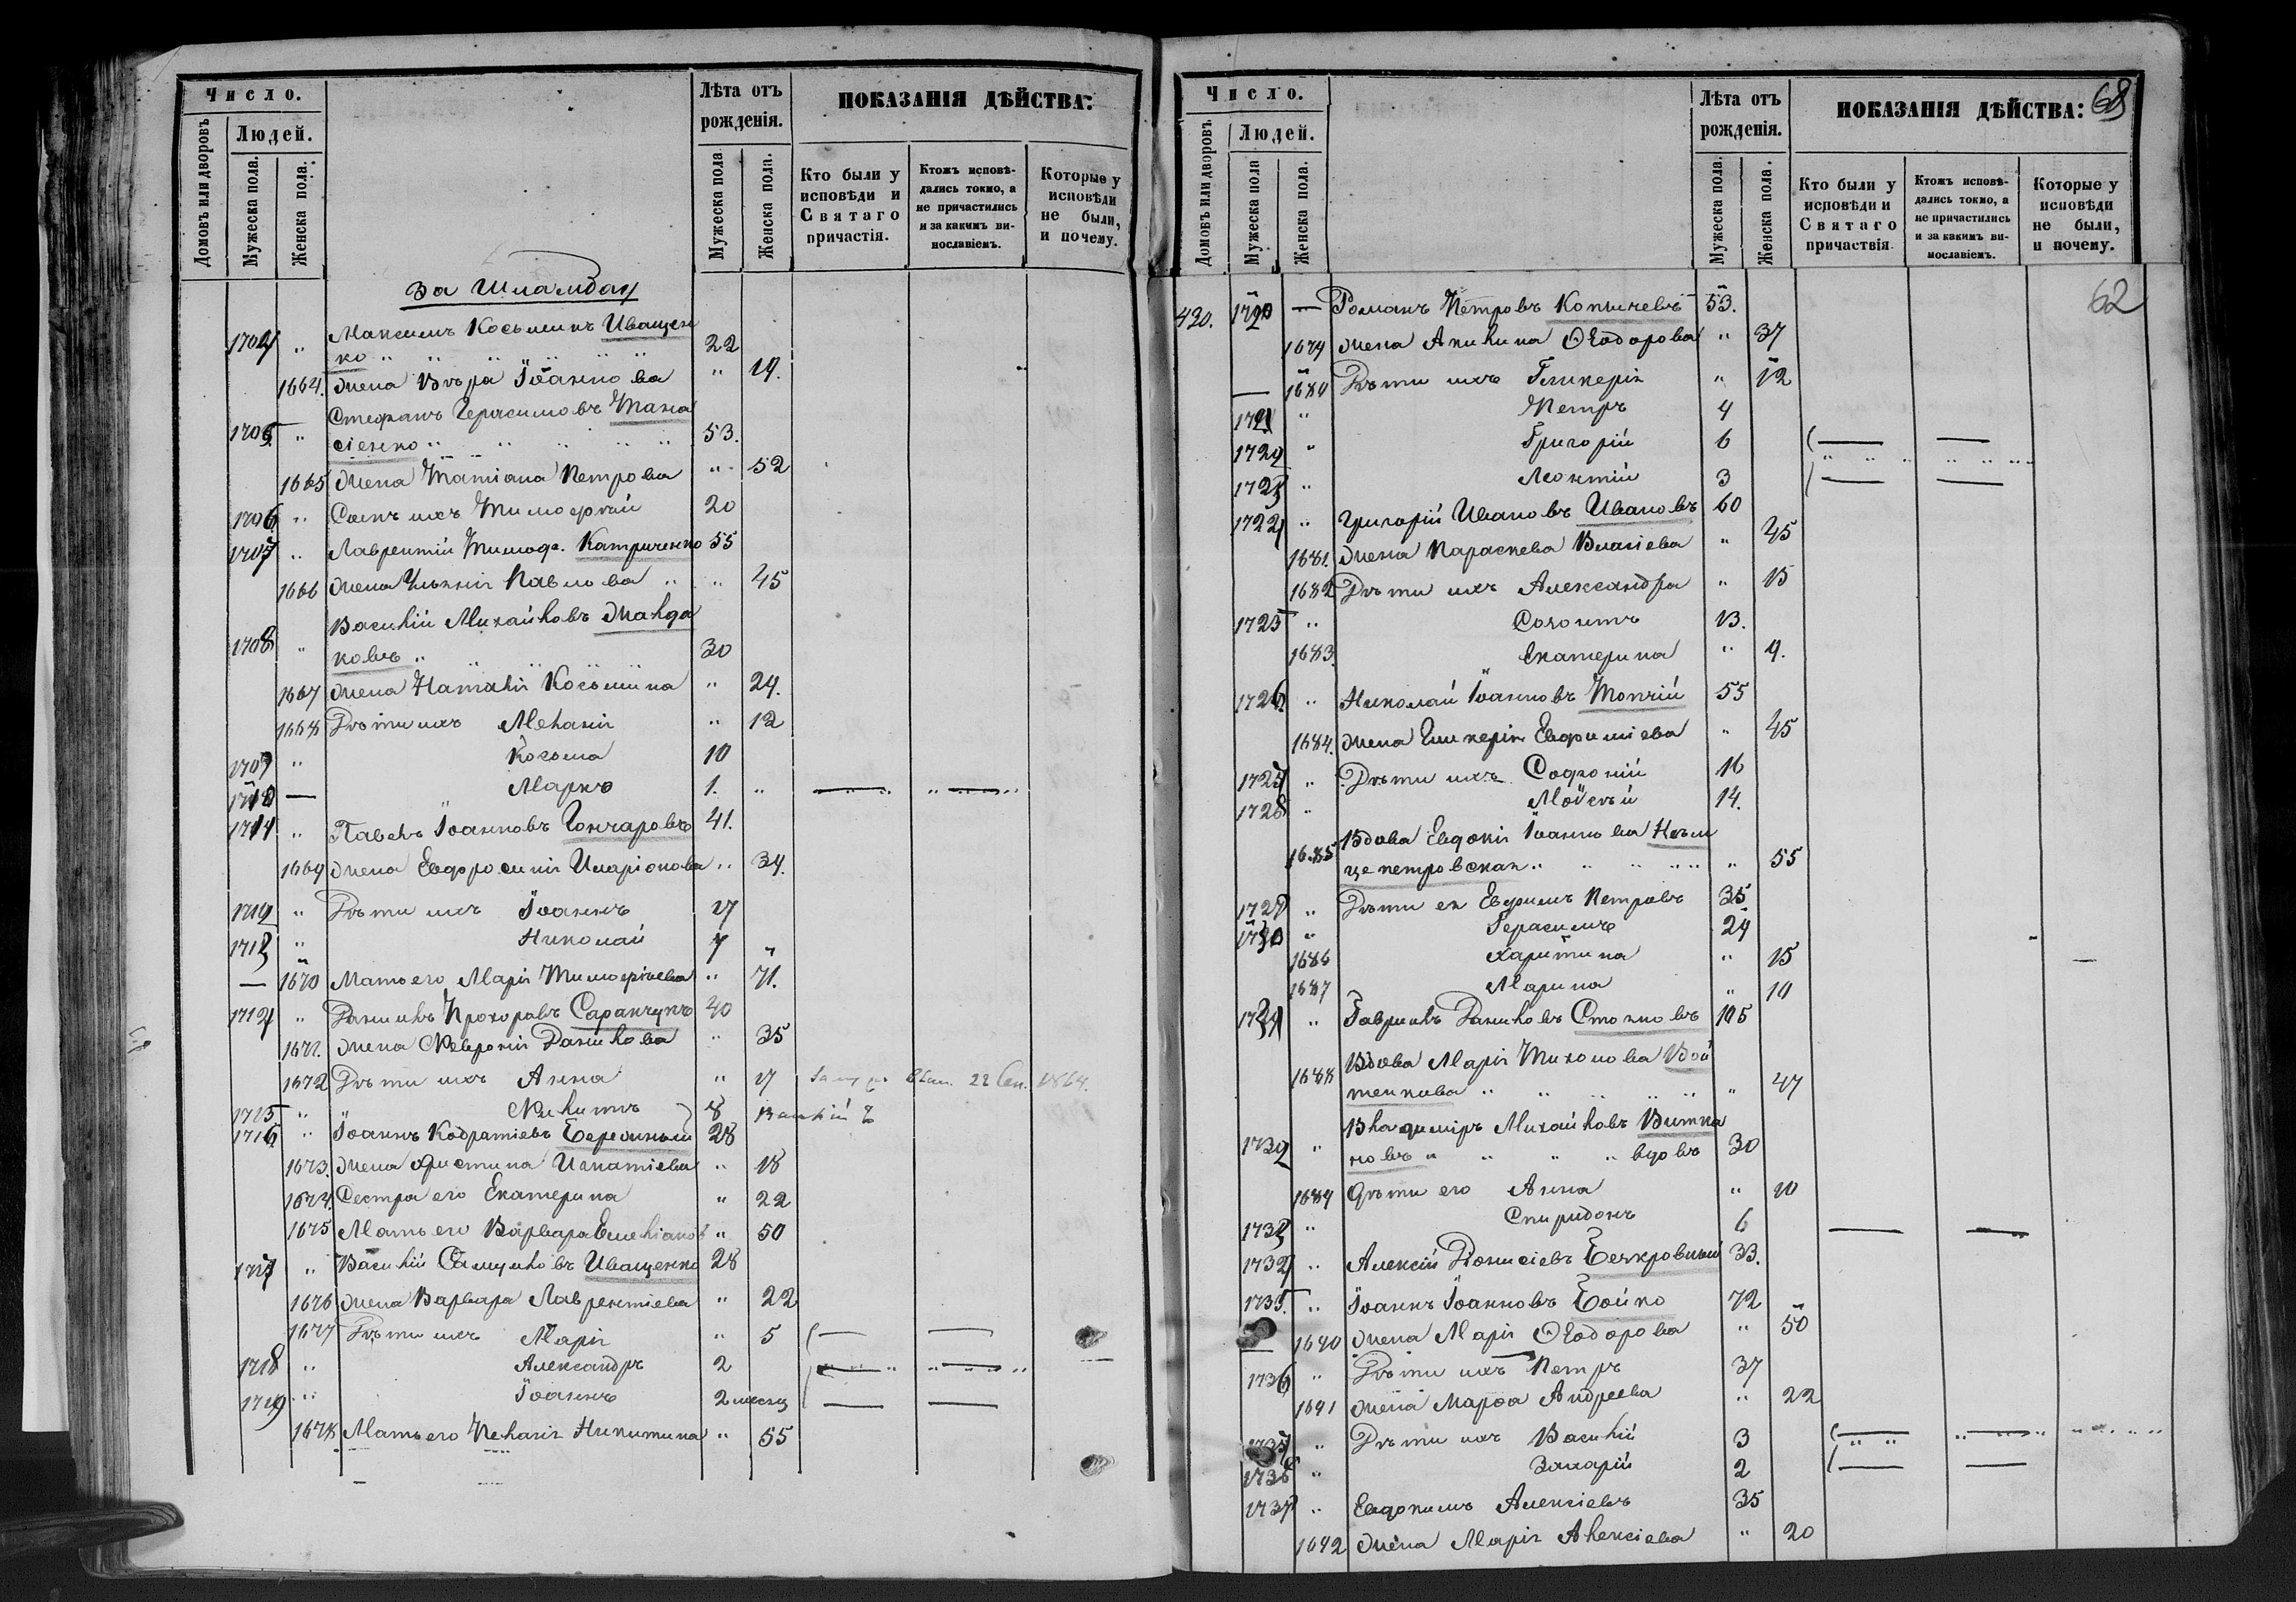 Число.
Людей.
Домовъ или дворовъ
Мужеска пола.
Женска пола.
Лѣта отъ рожденія.
Мужеска пола
Женска пола.
ПОКАЗАНІЯ ДѢЙСТВА:
Кто были у исповѣди и Святаго причастія.
Ктожъ исповѣдались токмо, а не причастились и за какимъ винославіемъ.
Которые у исповѣди не были, и почему.
Максимъ Косьминъ Иващен
1704 " ко " " " 22
1664. Жена Вѣра Іоаннова " 19.
Стефанъ Герасимовъ Тана
1705 " сіенко " " " 53.
1665 Жена Татіана Петрова " 52
1706 " Сынъ ихъ Тимофтій 20
1707 " Лаврентій Тимоф. Катриченко 55
1666 Жена Ульянія Павлова " " 45
Василій Михайловъ Манда
1708 " ковъ " 30
1667 Жена Наталія Косьмина " 24.
1668 Дѣти ихъ Меланія " 12
1709 " Косьма 10
1710 — Марко 1. "
1711 " Павелъ Іоанновъ Гончаровъ 41.
1669 Жена Евфросинія Иларіонова " 34.
1712 " Дѣти ихъ Іоаннъ 17
1713 " Николай 7 "
— 1670 Мать его Марія Тимофеева " 71.
1714 " Даніилъ Прохоровъ Саранчукъ 40
1671. Жена Февронія Данилова " 35
1672 Дѣти ихъ Анна " 17
1715 " Никита 8
1716 " Іоаннъ Кодратіевъ Бережный 28
1673. Жена Христина Игнатіева " 18
1674. Сестра его Екатерина " 22
1675 Мать его Варвара Емеліанов " 50
1717 " Василій Самуиловъ Иващенко 28
1676 Жена Варвара Лаврентіева " 22
1677 Дѣти ихъ Марія " 5
1718 " Александръ 2
1719 " Іоаннъ 2 месяц
1678 Мать его Пелагія Никитина " 55
Число.
Людей.
Домовъ или дворовъ.
Мужеска пола
Женска пола.
Лѣта отъ рожденія.
Мужеска пола.
Женска пола.
ПОКАЗАНІЯ ДѢЙСТВА: 68
Кто были у исповѣди и Святаго причастія
Ктожъ исповѣдались токмо, а не причастились и за какимъ винославіемъ.
Которые у исповѣди не были, и почему.
62
420. 1720 — Романъ Петровъ Копичевъ 53.
1679 Жена Акилина Ѳеодорова " 37
— 1680 Дѣти ихъ Гликерія " 12
1721 " Петръ 4
1722 " Григорій 6
1723 " Леонтій 3
1724 " Григорій Ивановъ Ивановъ 60
1681. Жена Параскева Власіева " 45
1682 Дѣти ихъ Александра " 15
1725 " Созонтъ 13.
1683. Екатерина " 9.
1726. " Николай Іоанновъ Топчій 55
1684. Жена Гликерія Евфиміева " 45
1727 " Дѣти ихъ Софоній 16
1728 " Моѵсей 14.
Вдова Евдокія Іоаннова Нѣм
1685 цепетровская " " " " 55
1729 " Дѣти ея Евфимъ Петровъ 35
1730 " Герасимъ 24
1686 Харитина " 15
1687 Марина " 10
1731 " Гавріилъ Даниловъ Стоновъ 105
Вдова Марія Тихонова Вой
1688 тенкова " " " " 47
Владиміръ Михайловъ Витка
1732 " новъ " " " " вдовъ 30
1689 Дѣти его Анна " 10
1733 " Спиридонъ 6
1734 " Алексій Діонисіевъ Безкровный 33.
1735. " Іоаннъ Іоанновъ Бойко 72
— 1690 Жена Марія Ѳеодорова " 50
1736 " Дѣти ихъ Петръ 37
1691 Жена Марѳа Андреева " 22
1737 " Дѣти ихъ Василій 3
1738 " Захарій 2
1739 " Евдокимъ Алексіевъ 35
1692 Жена Марія Алексіева " 20